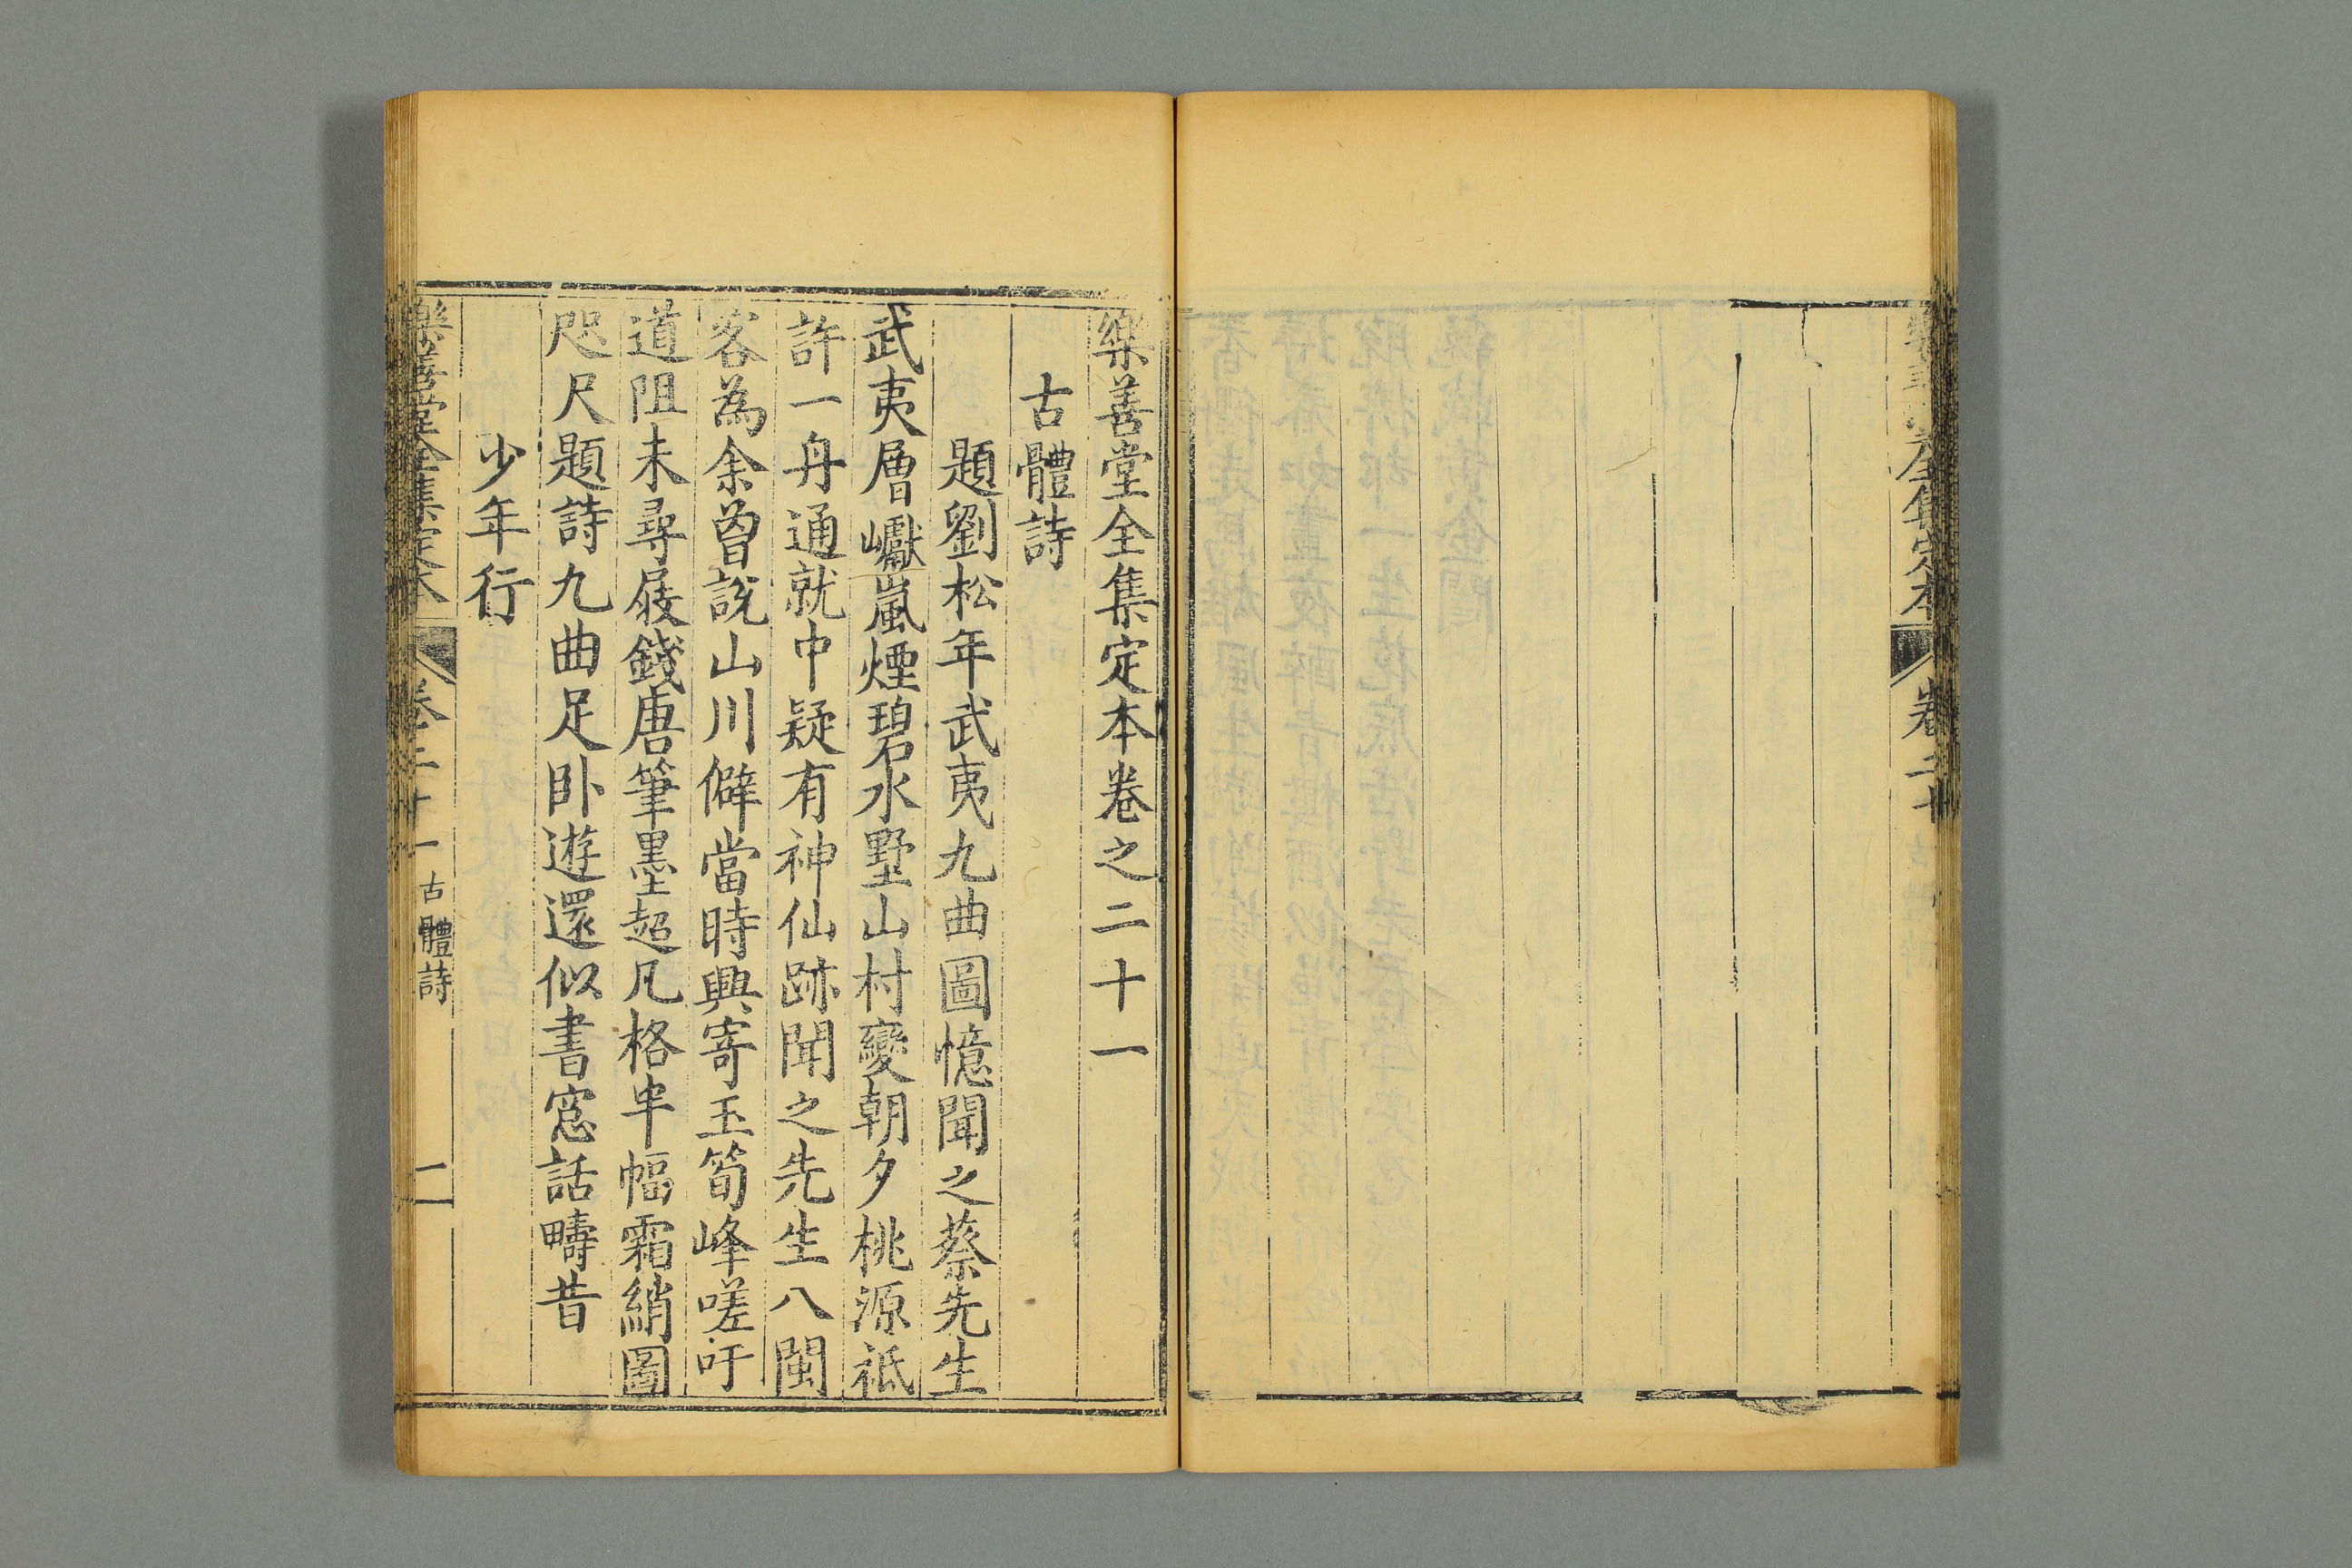 樂善堂全集定本卷之二十一
古體詩
題劉松年武夷九曲圖憶聞之蔡先生
武夷層巘嵐煙碧水墅山村變朝夕桃源祗
許一舟通就中疑有神仙跡聞之先生八閩
客為余曾說山川僻當時興寄玉筍峰嗟吁
道阻未尋屐錢唐筆墨超凡格半幅霜綃圖
咫尺題詩九曲足卧遊還似書窻話疇昔
少年行
樂善堂全集定本 卷二十一 古體詩 一
全集定本 卷二十